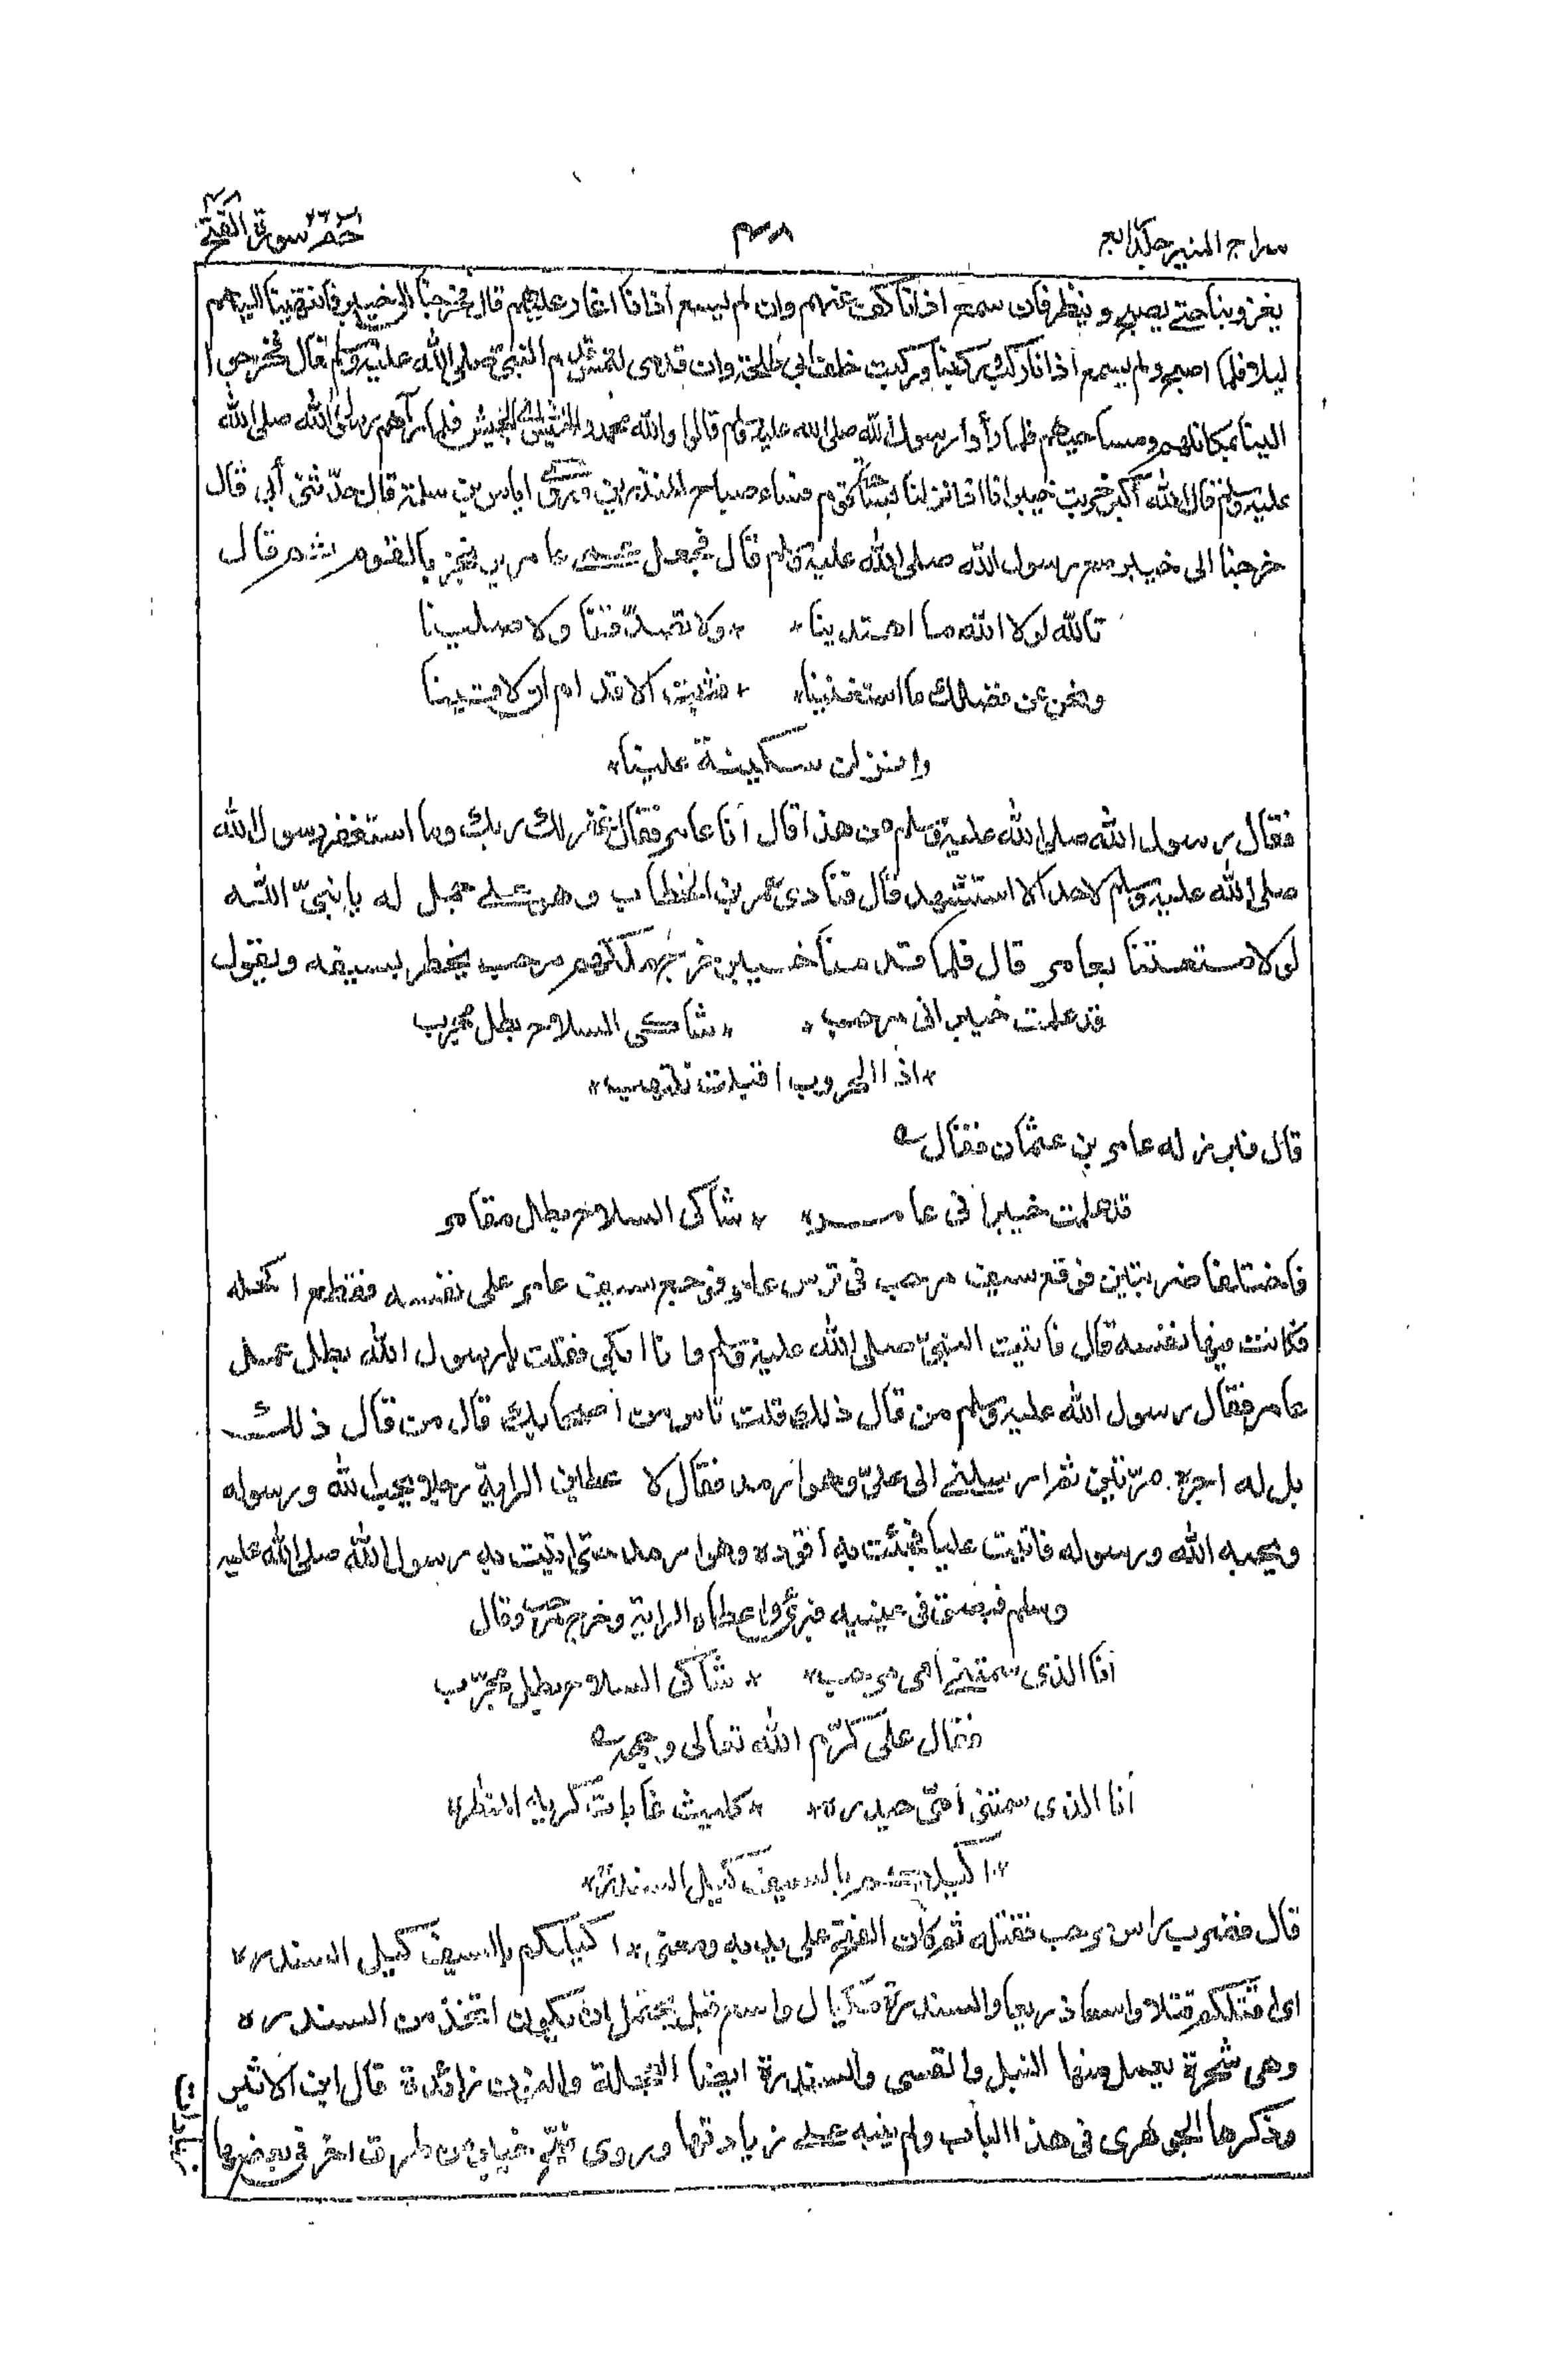 سراج المنير جلد رابع
٣٨
حٰم ٢٦ سورة الفتح
يغزو بنا حتى يصبح و ينظر فان سمع اذانا كف عنهم وان لم يسمع أذانا اغار عليهم قال فخرجنا الى خيبر فانتهينا اليهم
ليلا فلما اصبح و لم يسمع أذانا ركب ركبنا وركبت خلف ابي طلحة وان قدمى لتمس قدم النبى صلى الله عليه وسلم قال فخرجوا
الينا بمكاتلهم ومساحيهم فلما رأوا رسول الله صلى الله عليه وسلم قالوا والله محمد والخميس فلما رآهم رسول الله صلى الله
عليه وسلم قال الله أكبر خربت خيبر انا اذا نزلنا بساحة قوم فساء صباح المنذرين وروى اياس بن سلمة قال حدّثنى أبي قال
خرجنا الى خيبر مع رسول الله صلى الله عليه وسلم قال فجعل عمى عامر يرتجز بالقوم شم قال
تالله لولا الله ما اهتدينا ٭ ٭ ولا تصدّقنا ولا صلينا
ونحن عن فضلك ما استغنينا ٭ ٭ فثبت الاقدام ان لاقينا
وانزلن سكينة علينا ٭
فقال رسول الله صلى الله عليه وسلم من هذا قال أنا عامر فقال غفر لك ربك وما استغفر رسول الله
صلى الله عليه وسلم لاحد الا استشهد قال فنادى عمر بن الخطاب وهو على جمل له يا نبىّ الله
لولا متعتنا بعامر قال فلما قدمنا خيبر خرج ملكهم مرحب يخطر بسيفه ويقول
قد علمت خيبر انى مرحب ٭ ٭ شاكى السلاح بطل مجرب
٭ اذا الحروب اقبلت تلتهب ٭
قال فبرز له عامر بن عثمان فقال
قد علمت خيبر انى عامر ٭ ٭ شاكى السلاح بطل مغامر
فاختلفا ضربتين فوقع سيف مرحب فى ترس عامر فرجع سيف عامر على نفسه فقطع اكحله
فكانت فيها نفسه قال فاتيت النبىّ صلى الله عليه وسلم وانا ابكى فقلت يا رسول الله بطل عمل
عامر فقال رسول الله عليه وسلم من قال ذلك قلت ناس من أصحابك قال من قال ذلك
بل له اجره مرّتين ثم ارسلنى الى علىّ وهو ارمد فقال لا عطين الراية رجلا يحب الله ورسوله
ويحبه الله ورسوله فاتيت عليا فجئت به أقوده وهو ارمد حتى اتيت به رسول الله صلى الله عليه
وسلم فبصق فى عينيه فبرئ واعطاه الراية وخرج مرحب وقال
أنا الذى سمتنى أمى مرحب ٭ ٭ شاكى السلاح بطل مجرّب
فقال على كرّم الله تعالى وجهه
أنا الذى سمتنى أمى حيدره ٭ ٭ كليث غابات كريه المنظره
٭ اكيلهم بالسيف كيل السندره ٭
قال فضرب راس مرحب فقتله ثم كان الفتح على يديه ومعنى ٭ اكيلكم بالسيف كيل السندره ٭
اى اقتلكم قتلا واسعا ذريعا والسندرة مكيال واسع قيل يحتمل ان يكون اتخذ من السندره
وهى شجرة يعمل منها النبل والقسى والسندرة ايضا العجلة والنون زائدة قال ابن الاثير
وذكرها الجوهرى فى هذا الباب ولم ينبه على زيادتها وروى فتح خيبر من طرق اخر فى بعضها